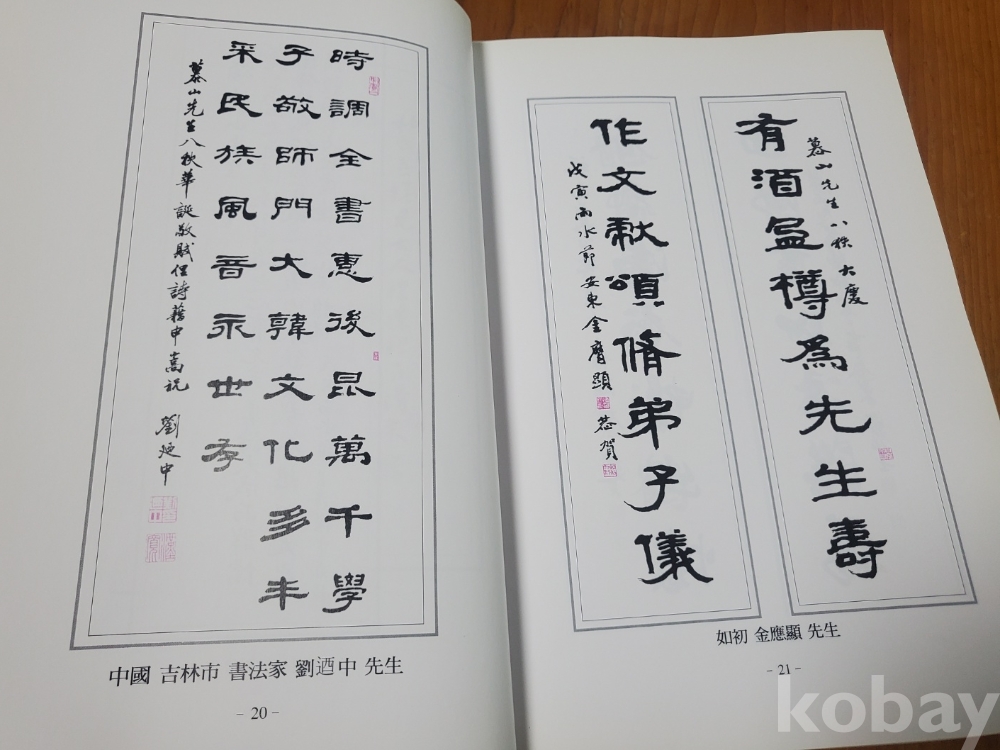 時調全書惠後昆萬千學
子敬師門大韓文化多丰
采民族風音永世存
慕山先生八秩華誕敬賦俚詩藉申嵩祝 劉廼中
中國 吉林市 書法家 劉迺中 先生
- 20 -
有酒盈樽為先生壽
慕山先生八秩大慶
作文獻頌脩弟子儀
戊寅雨水節安東金膺顯 恭賀
如初 金應顯 先生
- 21 -
kobay